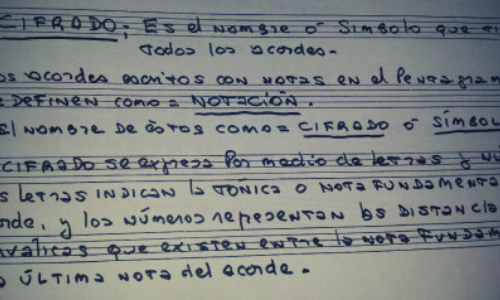 CIFRADO: Es el nombre ó Simbolo que
todos los acordes.
os acordes escritos con notas en el Pentagram
e DEFINEN como = NOTACIÓN.
El NOMBRE DE éstos como = CIFRADO ó SÍMBOL
CIFRADO se expresa Por medio de letras y
s letras INDICAN la TÓNICA o NOTA FUNDAMENTA
orde, y los números representan las DISTANCIA
rválicas que existen entre la nota FUNDAM
a ÚLTIMA NOTA del acorde.